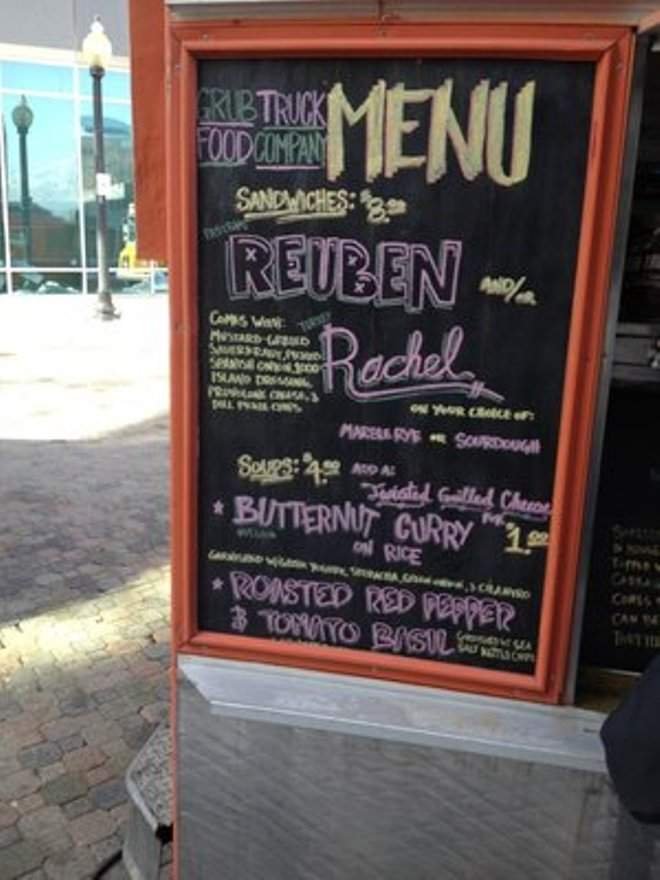 GRUB TRUCK
FOOD COMPANY
MENU
SANDWICHES: $8.00
PASTRAMI
REUBEN
AND/OR
COMES WITH:
MUSTARD-GLAZED
SAUERKRAUT, PICKLED
SPANISH ONION, 1000
ISLAND DRESSING,
PROVOLONE CHEESE, &
DILL PICKLE CHIPS.
TURKEY
Rachel
ON YOUR CHOICE OF:
MARBLE RYE OR SOURDOUGH
SOUPS: $4.00 ADD A:
Twisted Grilled Cheese
FOR $1.00
* BUTTERNUT CURRY
ON RICE
GARNISHED W/ SRIRACHA, GREEN ONION, & CILANTRO
* ROASTED RED PEPPER
& TOMATO BASIL
GARNISHED W/ SEA
SALT KETTLE CHIPS